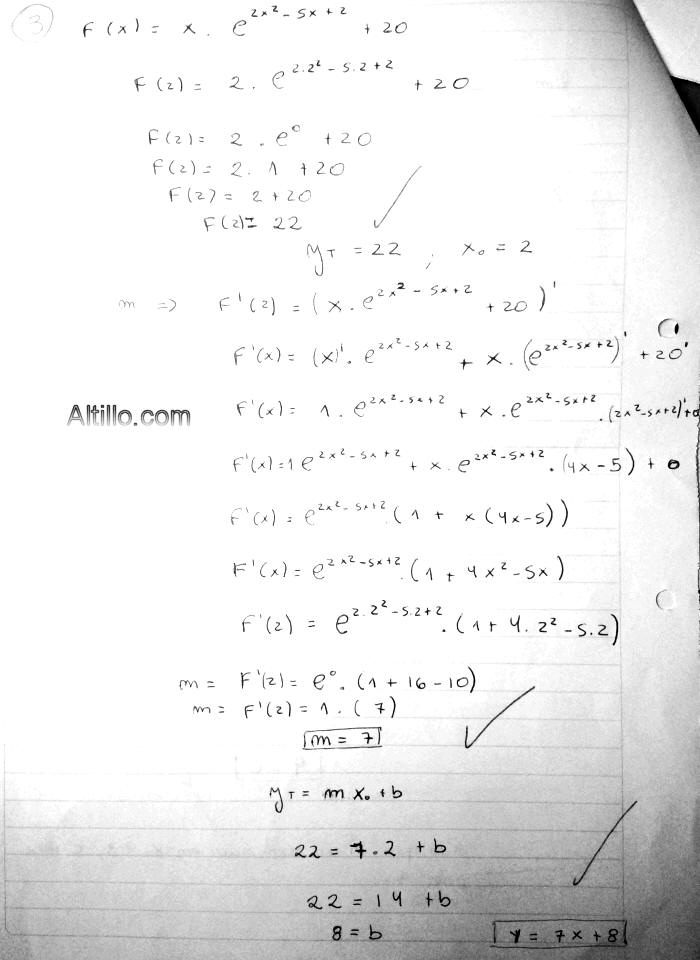 3 F(x) = x . e^{2x²-5x+2} + 20
F(2) = 2 . e^{2.2²-5.2+2} + 20
F(2) = 2 . e⁰ + 20
F(2) = 2 . 1 + 20
F(2) = 2 + 20
F(2) = 22
y_T = 22 ; x₀ = 2
m => F'(2) = (x . e^{2x²-5x+2} + 20)'
F'(x) = (x)' . e^{2x²-5x+2} + x . (e^{2x²-5x+2})' + 20'
Altillo.com F'(x) = 1 . e^{2x²-5x+2} + x . e^{2x²-5x+2} . (2x²-5x+2)' + 0
F'(x) = 1 e^{2x²-5x+2} + x . e^{2x²-5x+2} . (4x-5) + 0
F'(x) = e^{2x²-5x+2} (1 + x(4x-5))
F'(x) = e^{2x²-5x+2} . (1 + 4x²-5x)
F'(2) = e^{2.2²-5.2+2} . (1+4.2²-5.2)
m = F'(2) = e⁰ . (1+16-10)
m = F'(2) = 1 . (7)
m = 7
y_T = m x₀ + b
22 = 7.2 + b
22 = 14 + b
8 = b y = 7x + 8